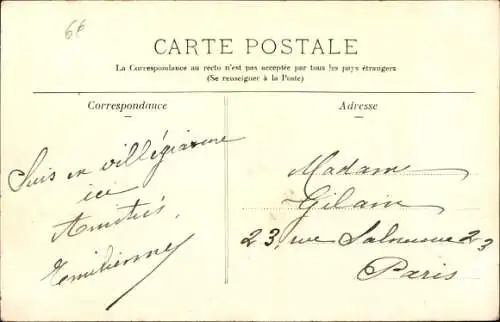 6€
CARTE POSTALE
La Correspondance au recto n'est pas acceptée par tous les pays étrangers
(Se renseigner à la Poste)
Correspondance
Adresse
Suis en villégiature
ici
Amitiés,
Emilienne
Madame
Gilain
23, rue Salneuve 23
Paris